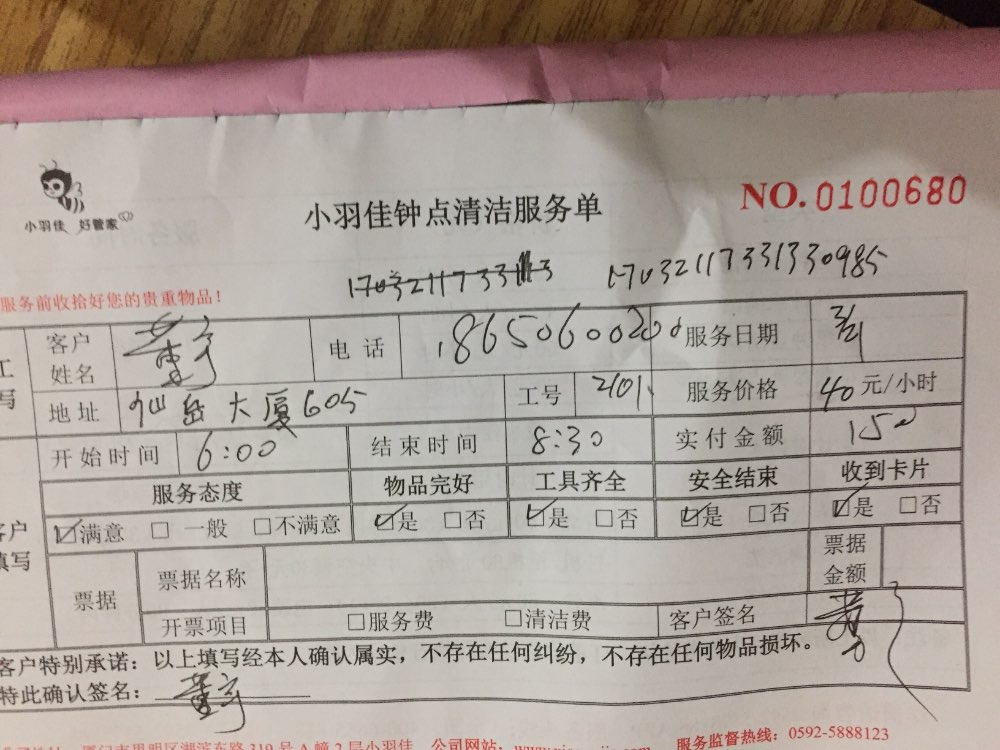 小羽佳 好管家
小羽佳钟点清洁服务单
NO. 0100680
17032117331330985
服务前收拾好您的贵重物品！
客户姓名 董 电话 18650600200 服务日期
地址 仙岳大厦605 工号 2101 服务价格 40元/小时
开始时间 6:00 结束时间 8:30 实付金额 150
服务态度 物品完好 工具齐全 安全结束 收到卡片
☑满意 □一般 □不满意 ☑是 □否 ☑是 □否 ☑是 □否 ☑是 □否
客户填写
票据 票据名称 票据金额
开票项目 □服务费 □清洁费 客户签名
客户特别承诺：以上填写经本人确认属实，不存在任何纠纷，不存在任何物品损坏。
特此确认签名：董
厦门市思明区湖滨东路319号A幢2层小羽佳 公司网站： 服务监督热线：0592-5888123